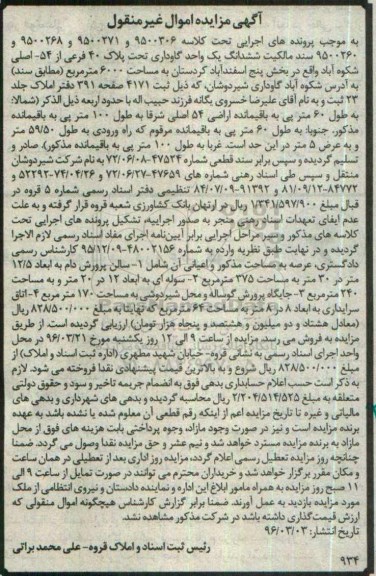 آگهی مزایده اموال غیر منقول
به موجب پرونده های اجرایی تحت کلاسه ۹۵۰۰۳۰۶ و ۹۵۰۰۲۷۱ و ۹۵۰۰۲۶۸ و
۹۵۰۰۲۶۰ سند مالکیت ششدانگ یک واحد گاوداری تحت پلاک ۴۰ فرعی از ۵۴- اصلی
شکوه آباد واقع در بخش پنج اسفندآباد کردستان به مساحت ۶۰۰۰ مترمربع (مطابق سند)
به آدرس شکوه آباد گاوداری شیردوشان، که ذیل ثبت ۴۱۷۱ صفحه ۳۹۱ دفتر املاک جلد
۲۳ ثبت و به نام آقای علیرضا خسروی یگانه فرزند حبیب اله با حدود اربعه ذیل الذکر (شمالا:
به طول ۶۰ متر پی به باقیمانده اراضی ۵۴ اصلی شرقا به طول ۱۰۰ متر پی به باقیمانده
مذکور. جنوبا: به طول ۶۰ متر پی به باقیمانده مرقوم که راه ورودی به طول ۵۹/۵۰ متر
و به عرض ۵ متر در این حد است. غربا به طول ۱۰۰ متر پی به باقیمانده مذکور). صادر و
تسلیم گردیده و سپس برابر سند قطعی شماره ۴۷۵۲۴-۷۲/۰۶/۰۸ به نام شرکت شیردوشان
منتقل و سپس طی اسناد رهنی شماره های ۴۷۶۵۹-۷۲/۰۶/۲۷ و ۷۴/۰۴/۲۶-۵۲۲۹۲ و
۸۴۷۷۲-۸۱/۰۹/۱۲ و ۹۱۳۹۲-۸۴/۰۷/۰۹ تنظیمی دفتر اسناد رسمی شماره ۵ قروه در
قبال مبلغ ۱/۳۴۱/۵۹۷/۹۰۰ ریال در ارتهان بانک کشاورزی شعبه قروه قرار گرفته و به علت
عدم ایفای تعهدات اسناد رهنی منجر به صدور اجراییه، تشکیل پرونده های اجرایی تحت
کلاسه های مذکور و سیر مراحل اجرایی برابر آیین نامه اجرای مفاد اسناد رسمی لازم الاجرا
گردیده و در نهایت طبق نظریه وارده به شماره ۴۸۰۰۲۱۵۶-۹۵/۱۲/۰۹ کارشناس رسمی
دادگستری، عرصه به مساحت مذکور و اعیانی آن شامل ۱- سالن پرورش دام به ابعاد ۱۲/۵
متر در ۳۰ متر به مساحت ۳۷۵ مترمربع ۲- سوله ای به ابعاد ۱۲ در ۲۰ متر و به مساحت
۲۴۰ مترمربع ۳- جایگاه پرورش گوساله و محل شیردوشی به مساحت ۱۷۰ متر مربع ۴- اتاق
سرایداری به ابعاد ۸ در ۸ متر به مساحت ۶۴ مترمربع که نهایتا به مبلغ ۸۲۸/۵۰۰/۰۰۰ ریال
(معادل هشتاد و دو میلیون و هشتصد و پنجاه هزار تومان) ارزیابی گردیده است. از طریق
مزایده به فروش می رسد. مزایده از ساعت ۹ الی ۱۲ روز یکشنبه مورخ ۹۶/۰۳/۲۱ در محل
واحد اجرای اسناد رسمی به نشانی قروه- خیابان شهید مطهری (اداره ثبت اسناد و املاک) از
مبلغ ۸۲۸/۵۰۰/۰۰۰ ریال شروع و به بالاترین قیمت پیشنهادی نقدا فروخته می شود. لازم
به ذکر است حسب اعلام حسابداری بدهی فوق به انضمام جریمه تاخیر و سود و حقوق دولتی
متعلقه به مبلغ ۲/۲۰۴/۵۱۴/۵۲۵ ریال محاسبه گردیده و بدهی های شهرداری و بدهی های
مالیاتی و غیره تا تاریخ مزایده اعم از اینکه رقم قطعی آن معلوم شده یا نشده باشد به عهده
برنده مزایده است و نیز در صورت وجود مازاد، وجوه پرداختی بابت هزینه های فوق از محل
مازاد به برنده مزایده مسترد خواهد شد و نیم عشر و حق مزایده نقدا وصول می گردد. ضمنا
چنانچه روز مزایده تعطیل رسمی اعلام گردد، مزایده روز اداری بعد از تعطیلی در همان ساعت
و مکان مقرر برگزار خواهد شد و خریداران محترم می توانند در صورت تمایل از ساعت ۹ الی
۱۱ صبح روز مزایده به همراه مامور ابلاغ این اداره و نماینده دادستان و نیروی انتظامی از ملک
مورد مزایده بازدید به عمل آورند. ضمنا برابر گزارش کارشناس هیچگونه اموال منقولی که
ارزش قیمت گذاری داشته باشد در شرکت مذکور مشاهده نشد.
تاریخ انتشار: ۹۶/۰۳/۰۳
رئیس ثبت اسناد و املاک قروه- علی محمد براتی
۹۳۴